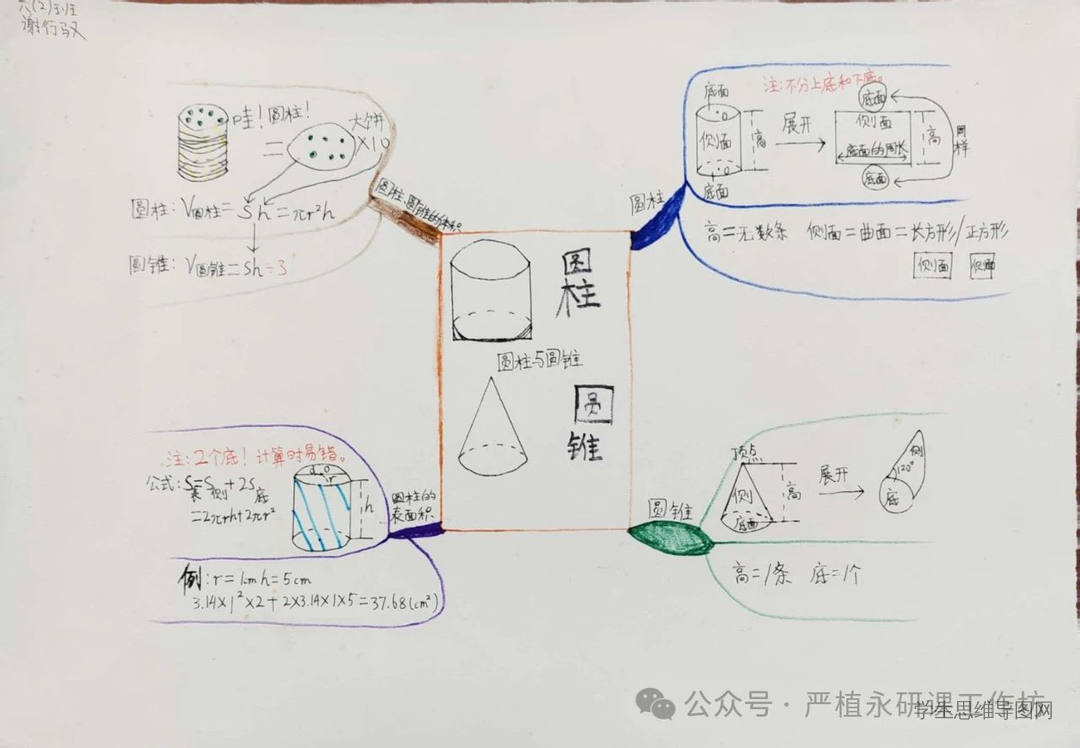 六(2)班
谢行驭
圆柱、圆锥的体积
哇!圆柱!
=
大饼
×10
圆柱:V圆柱=Sh=πr²h
圆锥:V圆锥=Sh÷3
圆柱
注:不分上底和下底。
底面
侧面
底面
高
展开
底面
侧面
底面的周长
底面
高
同样
高=无数条 侧面=曲面=长方形/正方形
侧面
侧面
圆柱
圆柱与圆锥
圆锥
圆柱的
表面积
注:2个底!计算时易错。
公式:S表=S侧+2S底
=2πrh+2πr²
d
o
r
h
例:r=1cm h=5cm
3.14×1²×2+2×3.14×1×5=37.68(cm²)
圆锥
顶点
侧
底面
高
展开
侧
120°
底
高=1条 底=1个
公众号·严植永研课工作坊
学生思维导图网